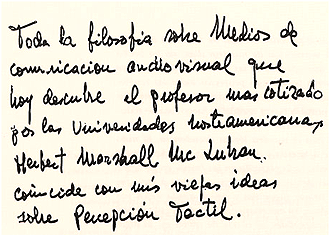 Toda la filosofia sobre Medios de
comunicacion audiovisual que
hoy descubre el profesor mas cotizado
por las Universidades norteamericanas,
Herbert Marshall Mc Luhan.
coincide con mis viejas ideas
sobre Percepción Tactil.